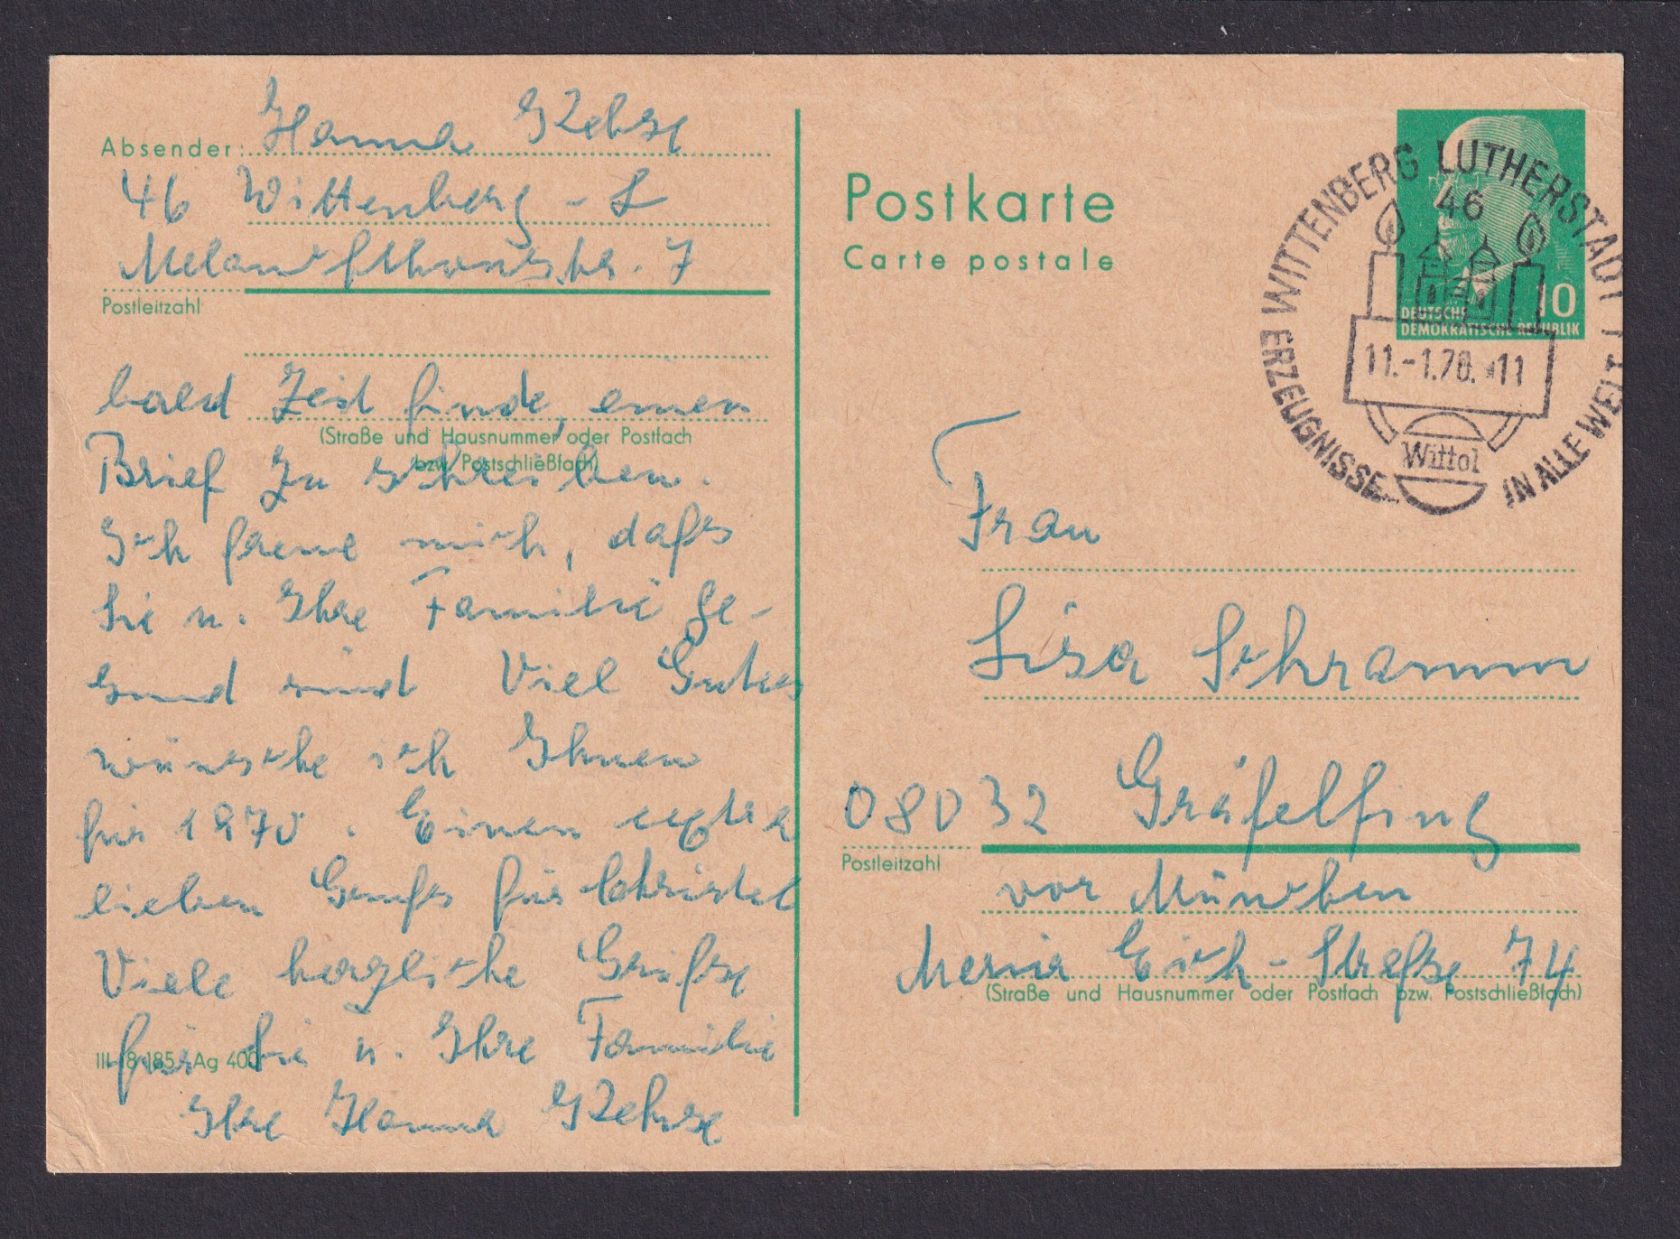 Absender: Hanna
46 Wittenberg - L
Melanchthonstr. 7
Postleitzahl
bald Zeit finde, einen
(Straße und Hausnummer oder Postfach
bzw. Postschließfach)
Brief zu schreiben.
Ich freue mich, dafs
Sie u. Ihre Familie ge-
sund sind Viel Gutes
wünsche ich Ihnen
für 1970. Einen extra
lieben Grufs für Christel
Viele herzliche Grüfse
für Sie u. Ihre Familie
III-18-185 Ag 400
Ihre Hanna
Postkarte
Carte postale
10
DEUTSCHE
DEMOKRATISCHE REPUBLIK
WITTENBERG LUTHERSTADT 1
46
11.-1.70.-11
Wittol
ERZEUGNISSE... IN ALLE WELT
Frau
Lisa Schramm
08032 Gräfelfing
Postleitzahl
vor München
Maria Eich-Strafse 74
(Straße und Hausnummer oder Postfach bzw. Postschließfach)